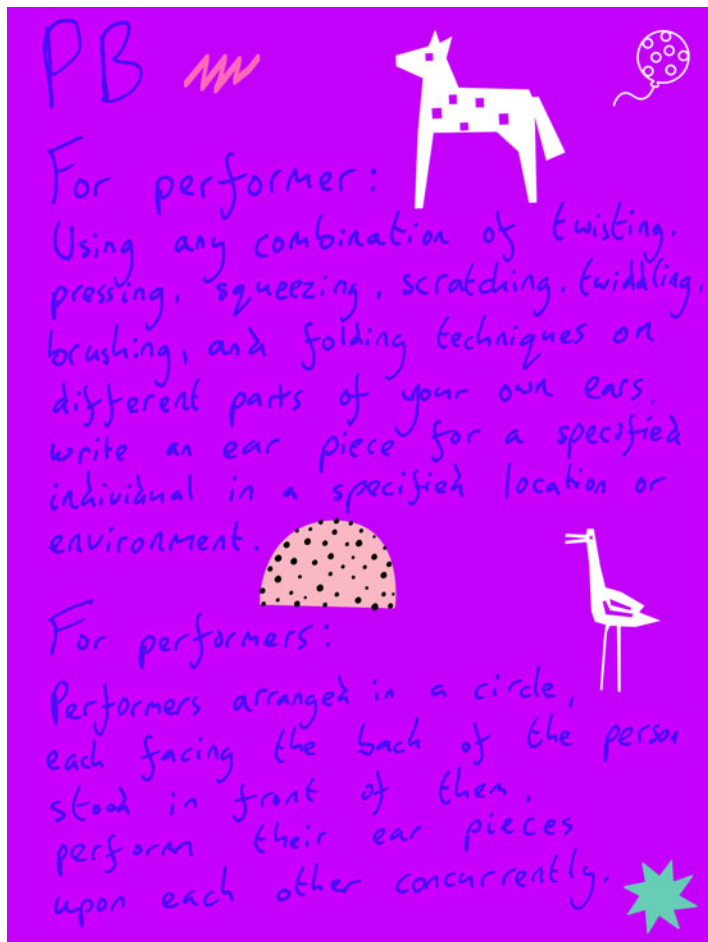 PB
For performer:
Using any combination of twisting.
pressing, squeezing, scratching, twiddling,
brushing, and folding techniques on
different parts of your own ears,
write an ear piece for a specified
individual in a specified location or
environment.
For performers:
Performers arranged in a circle,
each facing the back of the person
stood in front of them,
perform their ear pieces
upon each other concurrently.